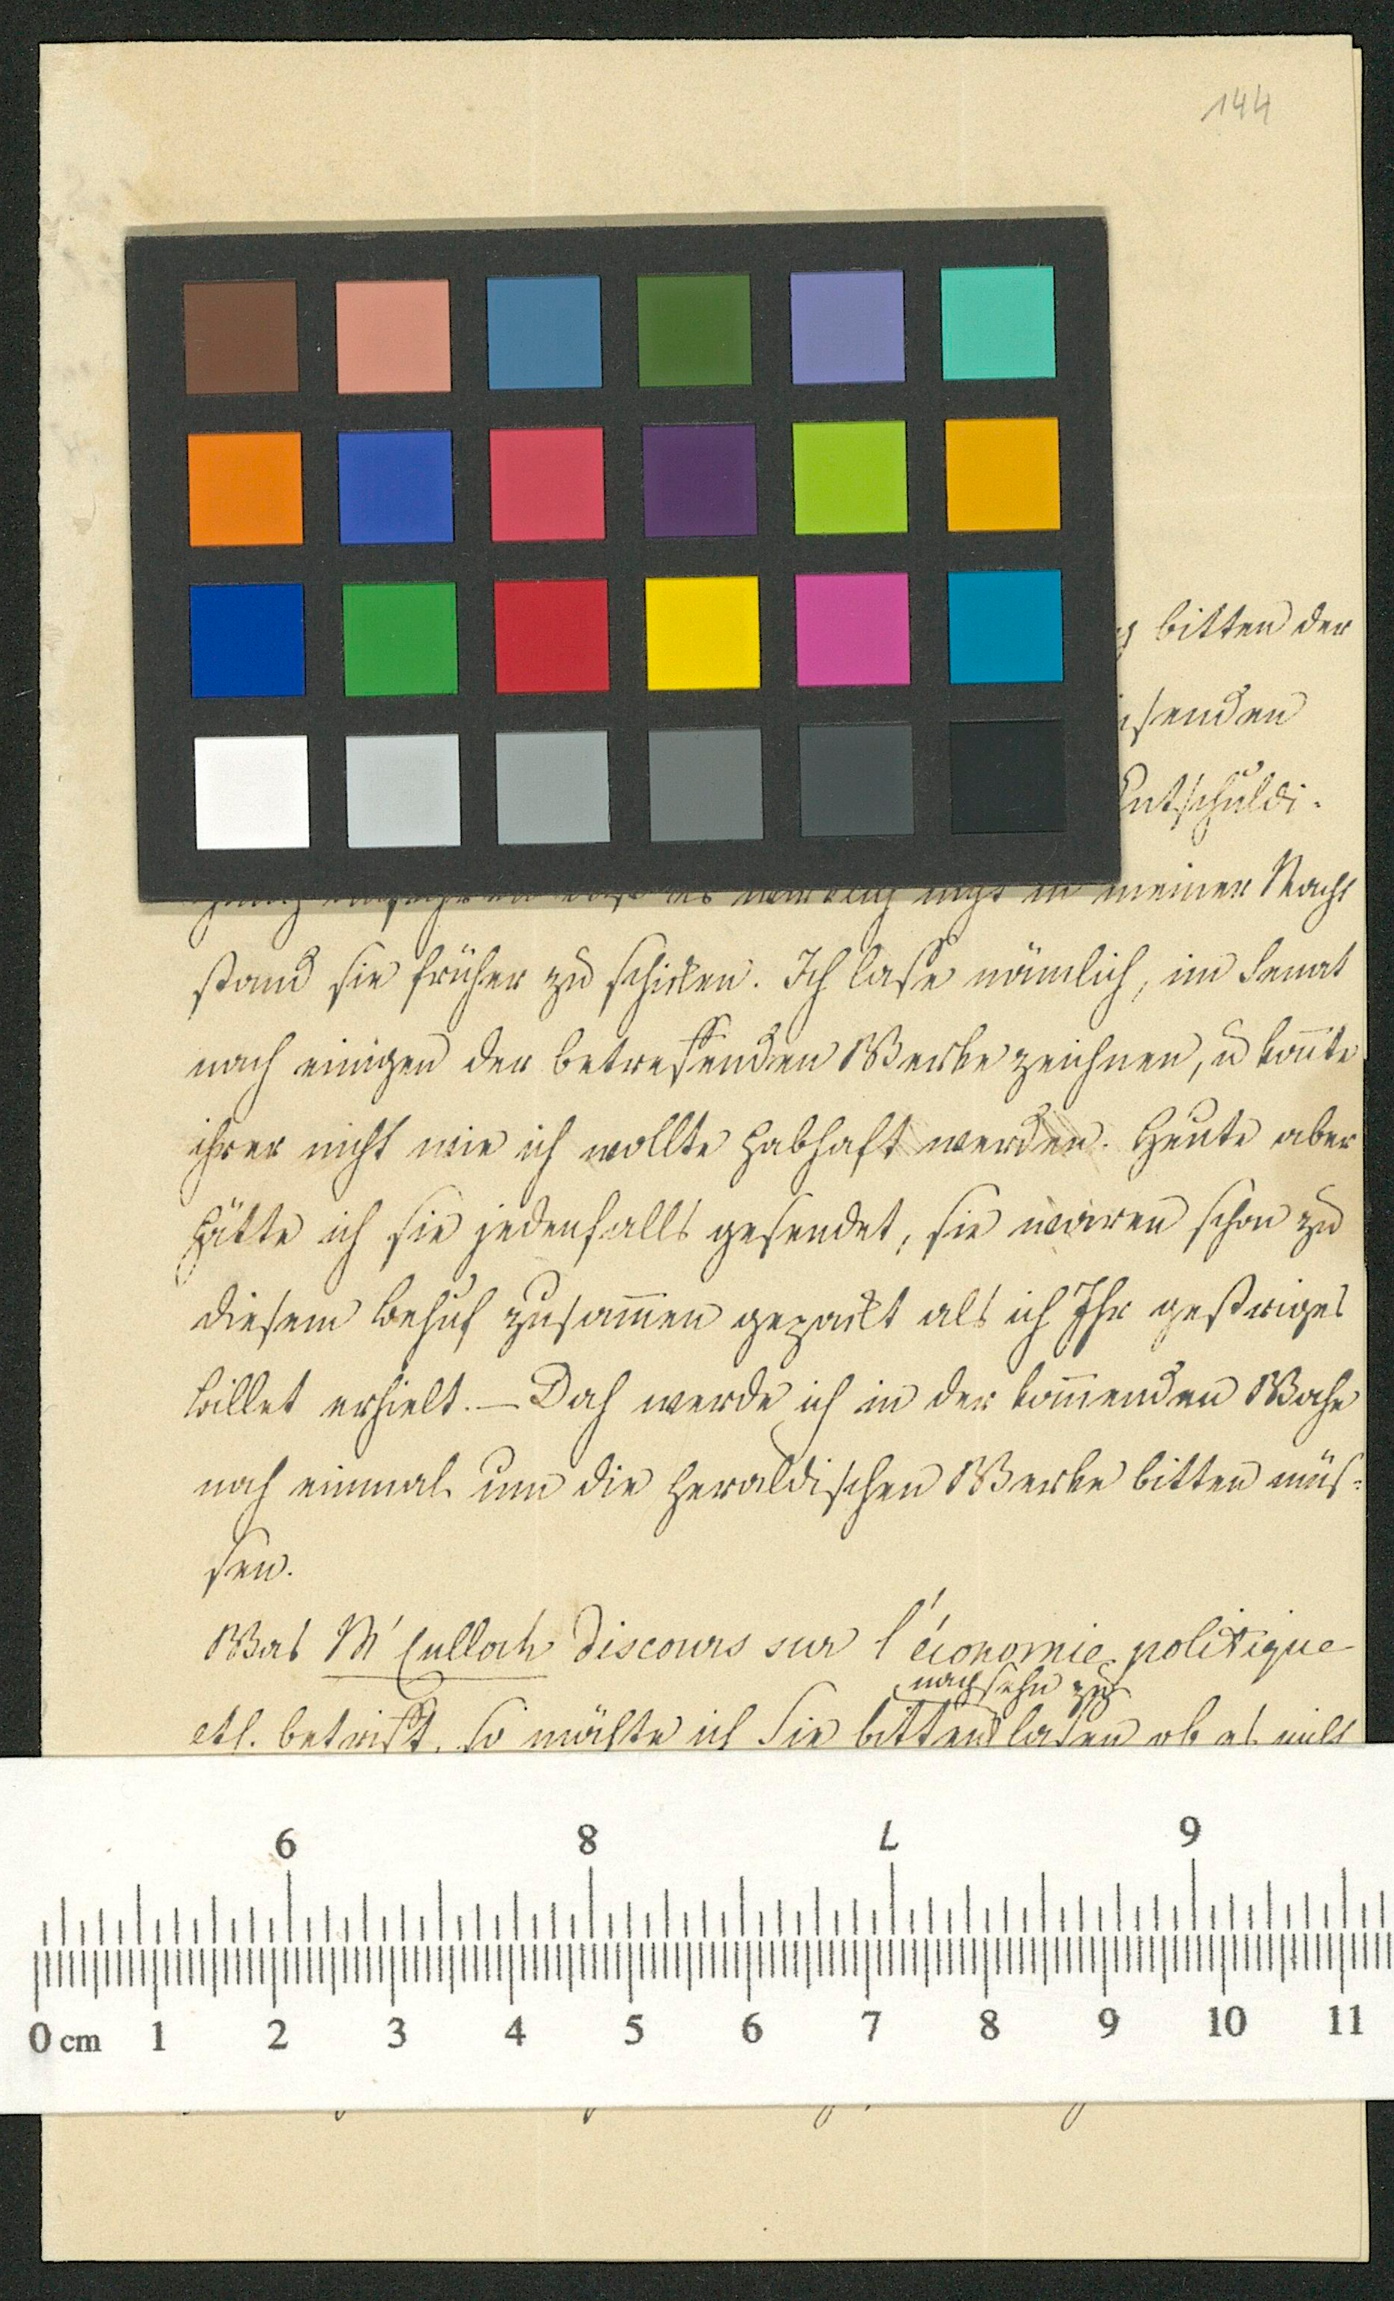 144
bitten der
isenden
Entschuldi-
in meiner Macht
stand sie früher zu schicken. Ich lasse nämlich, im Senat
nach einigen der betreffenden Werke zeichnen, u kon̄te
ihrer nicht wie ich wollte habhaft werden. Heute aber
hätte ich sie jedenfalls gesendet, sie waren schon zu
diesem Behuf zusam̄en gepackt als ich Ihr gestriges
Billet erhielt. — Doch werde ich in der kom̄enden Woche
noch einmal um die heraldischen Werke bitten müs-
sen.
Was M'Culloch discours sur l'économie politique
nachsehn zu
etc. betrifft, so möchte ich Sie bitten lassen ob es
6 8 7 9
0 cm 1 2 3 4 5 6 7 8 9 10 11